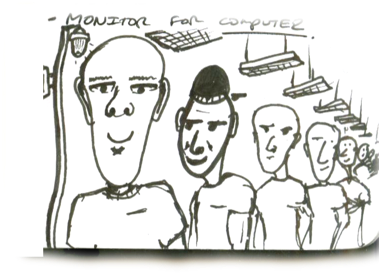 - MONITOR FOR COMPUTER